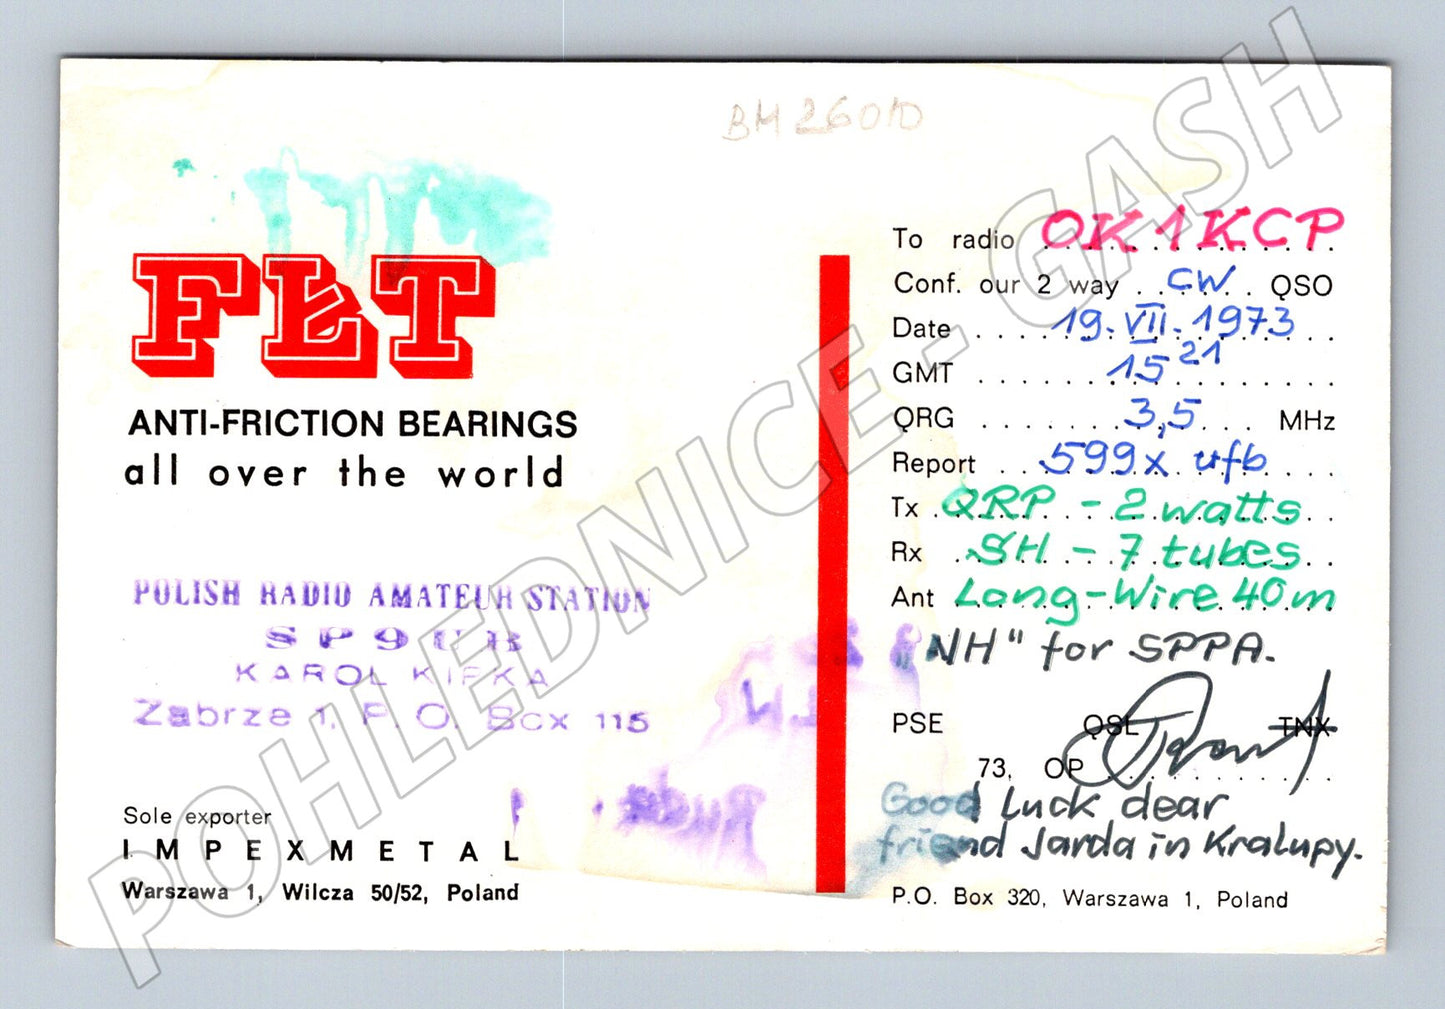 BM26010
FŁT
ANTI-FRICTION BEARINGS
all over the world
POLISH RADIO AMATEUR STATION
SP9UB
KAROL KIFKA
Zabrze 1, P. O. Box 115
Sole exporter
IMPEXMETAL
Warszawa 1, Wilcza 50/52, Poland
To radio OK1KCP
Conf. our 2 way CW QSO
Date 19. VII. 1973
GMT 15 21
QRG 3,5 MHz
Report 599x ufb
Tx QRP - 2 watts
Rx SH - 7 tubes
Ant Long-Wire 40m
"NH" for SPPA.
PSE QSL TNX
73, OP
Good Luck dear
friend Jarda in Kralupy.
P.O. Box 320, Warszawa 1, Poland
POHLEDNICE - GASH